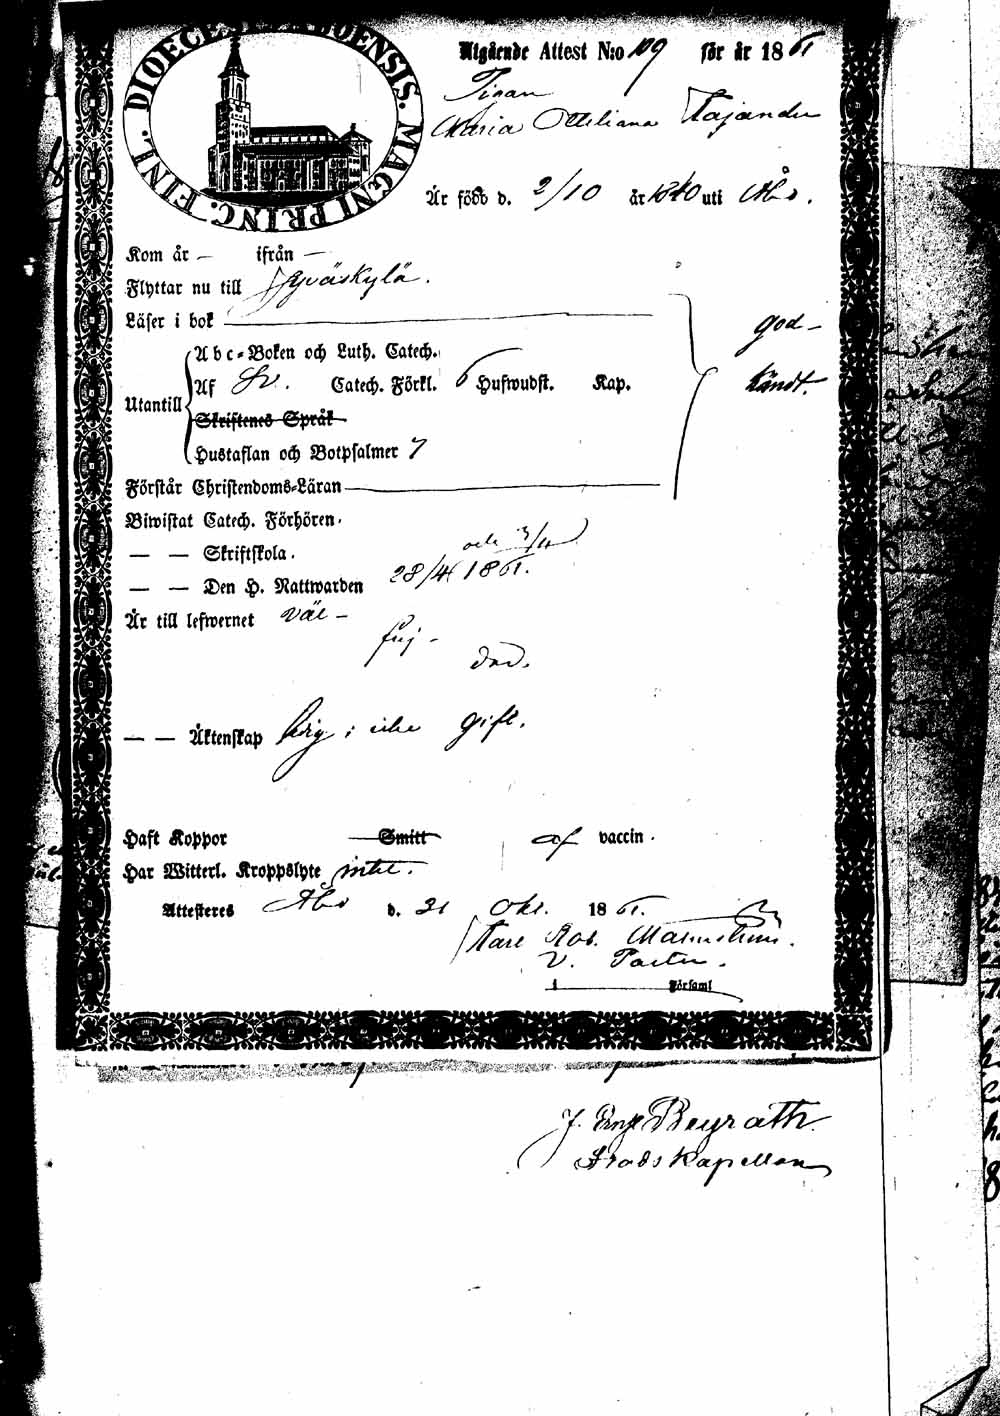 DIOECE ABOENSIS. MAGNI PRINC. FINL.
Utgående Attest N:o 109 för år 1861
Pigan
Maria Ottiliana Kajander
Är född d. 2/10 år 1840 uti Åbo.
Kom år — ifrån —
Flyttar nu till Jyväskylä.
Läser i bok
Abc-Boken och Luth. Catech.
Utantill
Af Sv. Catech. Förkl. 6 Hufwudst. Kap.
Skriftenes Språk
Hustaflan och Botpsalmer 7
Förstår Christendoms-Läran
god-
kändt.
Biwistat Catech. Förhören.
— — Skriftskola.
och 3/11
— — Den H. Nattwarden 28/4 1861.
Är till lefwernet väl-
frej-
dad.
— — Äktenskap ledig; icke gift.
Haft Koppor Smitt af vaccin.
Har Witterl. Kroppslyte intet.
Attesteres Åbo d. 31 Okt. 1861.
Karl Rob. Malmström.
V. Pastor.
Församl
J. Ernst Beyrath.
Stadskapellan